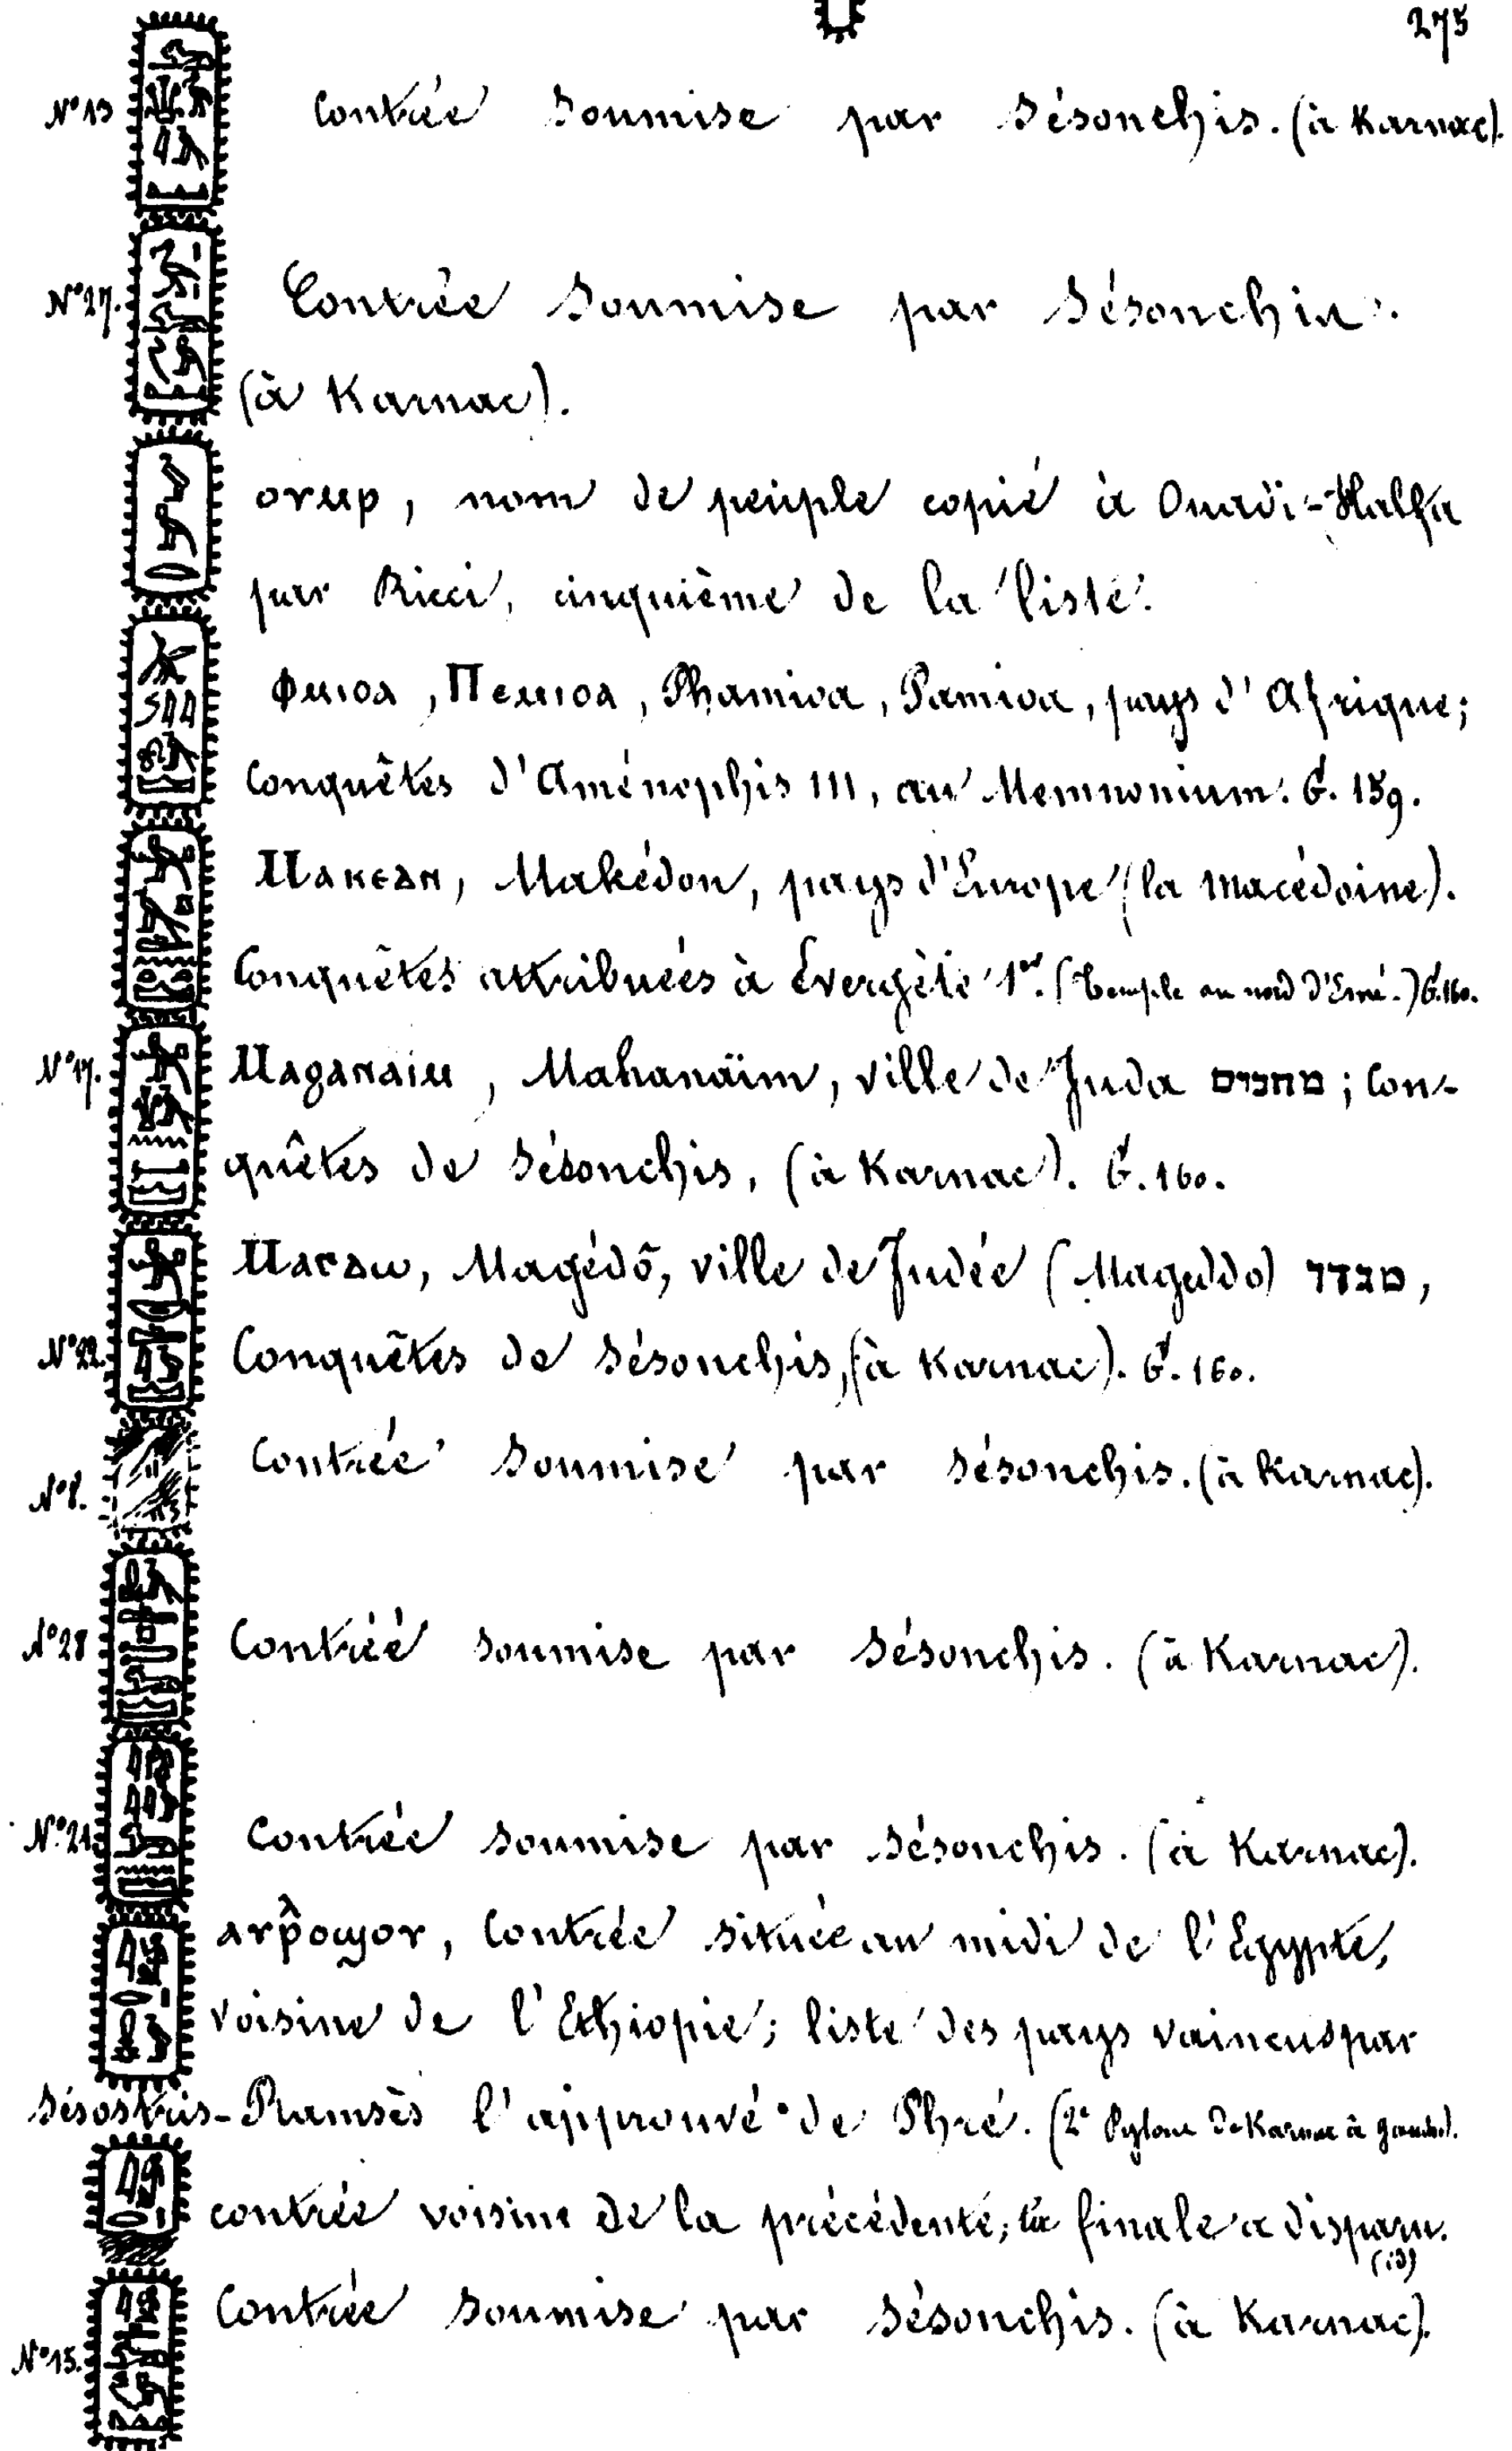 275
N° 13 Contrée soumise par Sésonchis. (à Karnac).
N° 27. Contrée soumise par Sésonchis.
(à Karnac).
ⲟⲩⲙⲣ, nom de peuple copié à Ouadi-Halfa
par Ricci, cinquième de la liste.
Ⲫⲙⲓⲟⲁ, Ⲡⲉⲙⲓⲟⲁ, Phamioa, Pamioa, pays d'Afrique;
Conquêtes d'Aménophis III, au Memnonium. G. 159.
Ⲙⲁⲕⲉⲇⲛ, Makédon, pays d'Europe (la Macédoine).
Conquêtes attribuées à Évergète 1er. (Temple au nord d'Esné.) G. 160.
N° 17. Ⲙⲁϩⲁⲛⲁⲓⲙ, Mahanaïm, ville de Juda מחנים; Con-
quêtes de Sésonchis, (à Karnac). G. 160.
Ⲙⲁⲅⲇⲱ, Magédô, ville de Judée (Mageddo) מגדד,
N° 22. Conquêtes de Sésonchis, (à Karnac). G. 160.
N° 8. Contrée soumise par Sésonchis. (à Karnac).
N° 28 Contrée soumise par Sésonchis. (à Karnac).
N° 21. Contrée soumise par Sésonchis. (à Karnac).
ⲁⲩⲣⲟϣⲟⲩ, Contrée située au midi de l'Egypte,
voisine de l'Ethiopie; liste des pays vaincus par
Sésostris-Ramsès l'approuvé de Phré. (2e Pylone de Karnac à gauche).
contrée voisine de la précédente; la finale a disparu.
(id)
Contrée soumise par Sésonchis. (à Karnac).
N° 15.